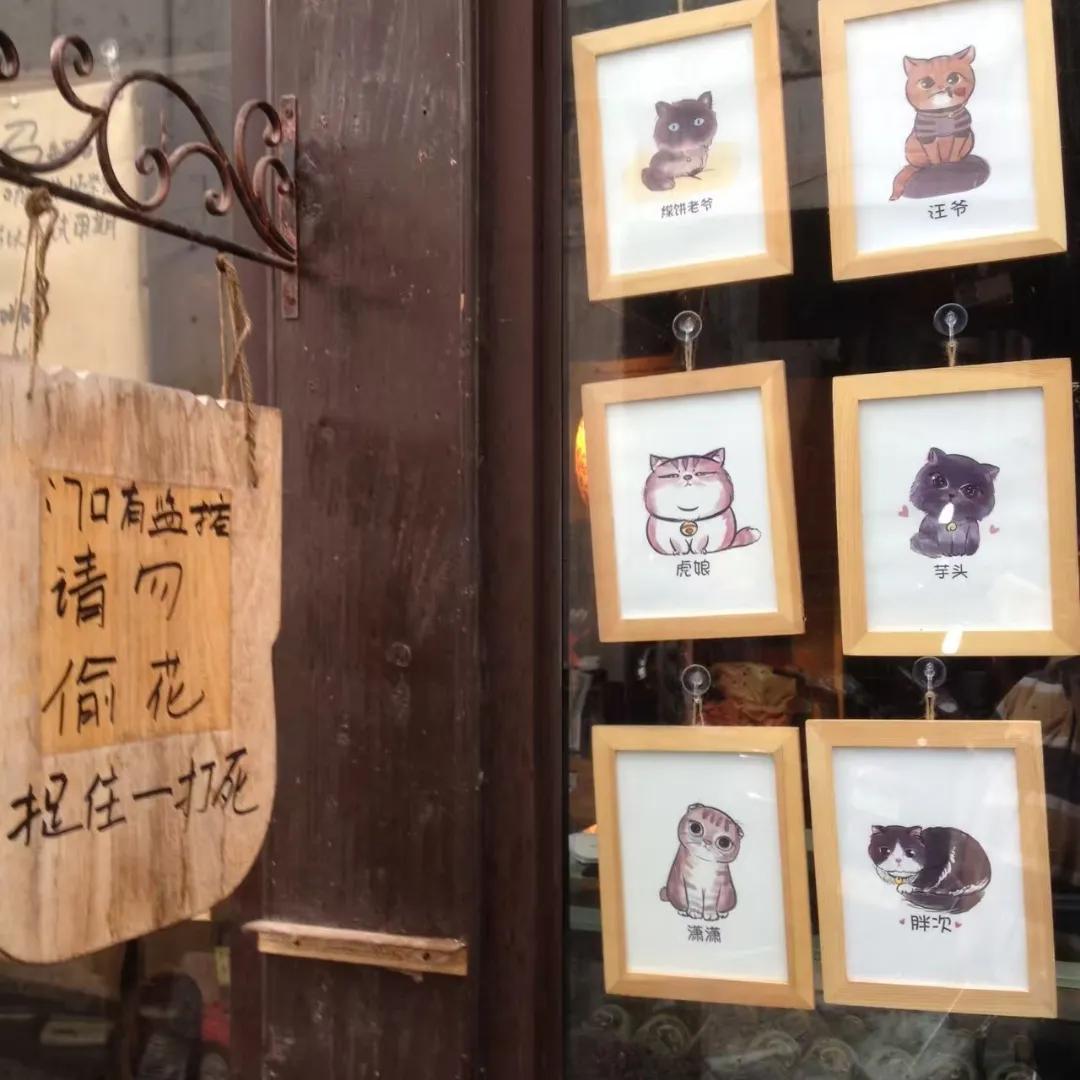 门口有监控
请勿
偷花
捉住一打死
煤饼老爷
汪爷
虎娘
芋头
潇潇
胖次